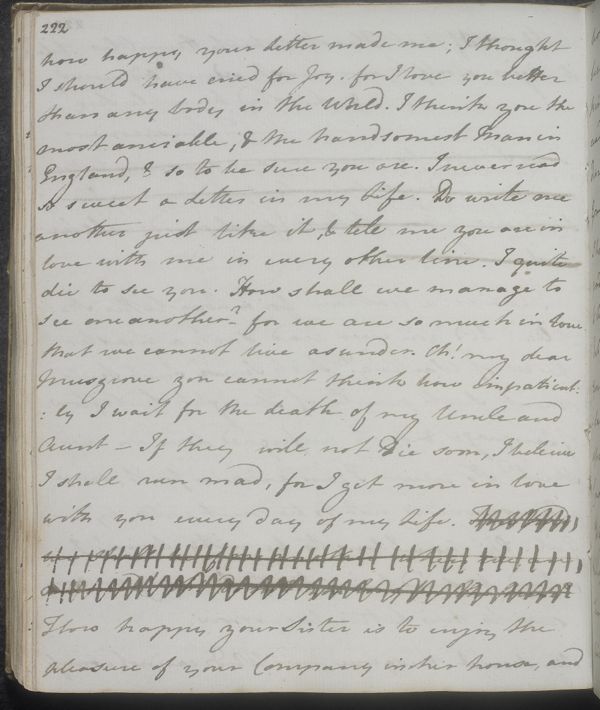 222
how happy your Letter made me; I thought
I should have cried for Joy, for I love you better
than any body in the World. I think you the
most amiable, & the handsomest Man in
England, & so to be sure you are. I never read
so sweet a Letter in my Life. Do write me
another just like it, & tell me you are in
love with me in every other line. I quite
die to see you. How shall we manage to
see one another? for we are so much in love
that we cannot live asunder. Oh! my dear
Musgrove you cannot think how impatient:
:ly I wait for the death of my Uncle and
Aunt – If they will not Die soon, I beleive
I shall run mad, for I get more in love
with you every day of my Life.
How happy your Sister is to enjoy the
pleasure of your Company in her house, and